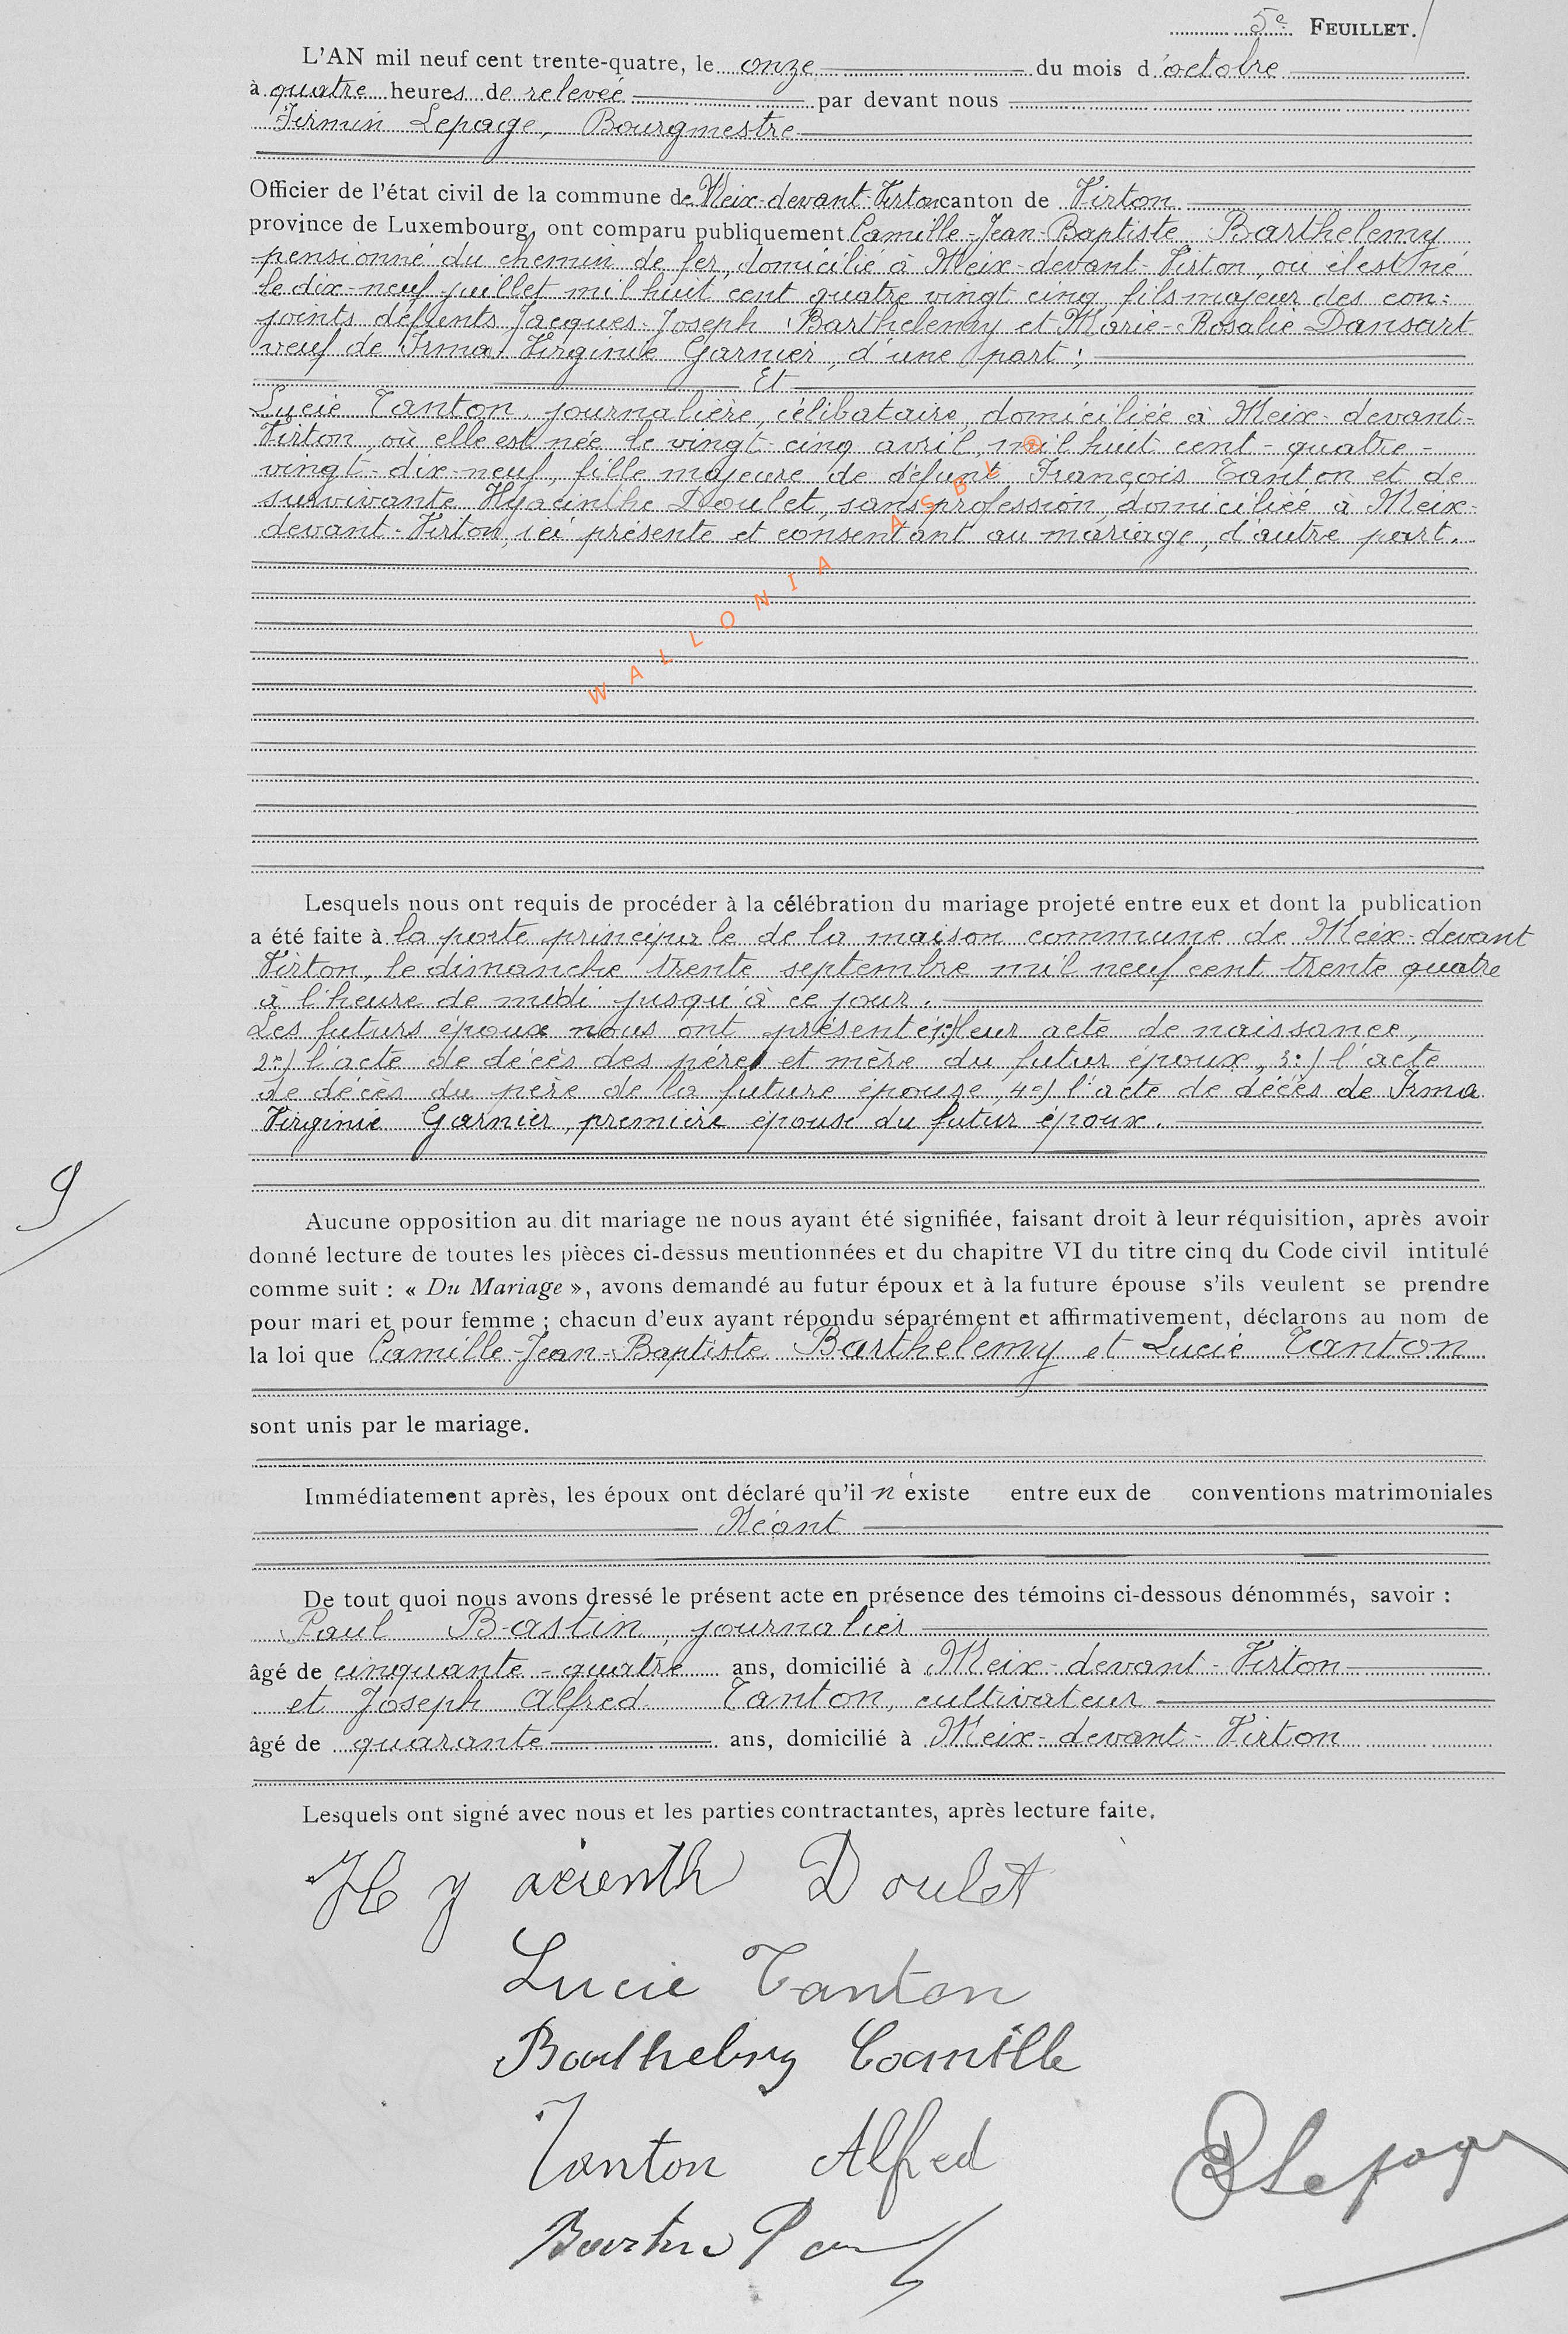 5e FEUILLET.
L'AN mil neuf cent trente-quatre, le onze du mois d'octobre
à quatre heures de relevée par devant nous
Firmin Lepage, Bourgmestre
Officier de l'état civil de la commune de Meix-devant-Virton canton de Virton
province de Luxembourg, ont comparu publiquement Camille-Jean-Baptiste Barthelemy
pensionné du chemin de fer, domicilié à Meix-devant-Virton, où il est né
le dix-neuf juillet mil huit cent quatre vingt cinq, fils majeur des con-
joints défunts Jacques-Joseph Barthelemy et Marie-Rosalie Dansart
veuf de Irma Virginie Garnier, d'une part ;
Et
Lucie Tanton, journalière, célibataire, domiciliée à Meix-devant-
Virton, où elle est née le vingt-cinq avril, mil huit cent-quatre-
vingt-dix-neuf, fille majeure de défunt François Tanton et de
survivante Hyacinthe Doulet, sans profession, domiciliée à Meix-
devant-Virton, ici présente et consentant au mariage, d'autre part.
WALLONIA ASBL ®
Lesquels nous ont requis de procéder à la célébration du mariage projeté entre eux et dont la publication
a été faite à la porte principale de la maison commune de Meix-devant
Virton, le dimanche trente septembre mil neuf cent trente quatre
à l'heure de midi jusqu'à ce jour.
Les futurs époux nous ont présenté 1°) leur acte de naissance,
2°) l'acte de décès des père et mère du futur époux, 3°) l'acte
de décès du père de la future épouse, 4°) l'acte de décès de Irma
Virginie Garnier, première épouse du futur époux.
9
Aucune opposition au dit mariage ne nous ayant été signifiée, faisant droit à leur réquisition, après avoir
donné lecture de toutes les pièces ci-dessus mentionnées et du chapitre VI du titre cinq du Code civil intitulé
comme suit : « Du Mariage », avons demandé au futur époux et à la future épouse s'ils veulent se prendre
pour mari et pour femme ; chacun d'eux ayant répondu séparément et affirmativement, déclarons au nom de
la loi que Camille-Jean-Baptiste Barthelemy et Lucie Tanton
sont unis par le mariage.
Immédiatement après, les époux ont déclaré qu'il n'existe entre eux de conventions matrimoniales
Néant
De tout quoi nous avons dressé le présent acte en présence des témoins ci-dessous dénommés, savoir :
Paul Bastin, journalier
âgé de cinquante-quatre ans, domicilié à Meix-devant-Virton
et Joseph Alfred Tanton, cultivateur
âgé de quarante ans, domicilié à Meix-devant-Virton
Lesquels ont signé avec nous et les parties contractantes, après lecture faite.
Hyacienth Doulet
Lucie Tanton
Barthelemy Camille
Tanton Alfred
Lepage
Bastin Paul